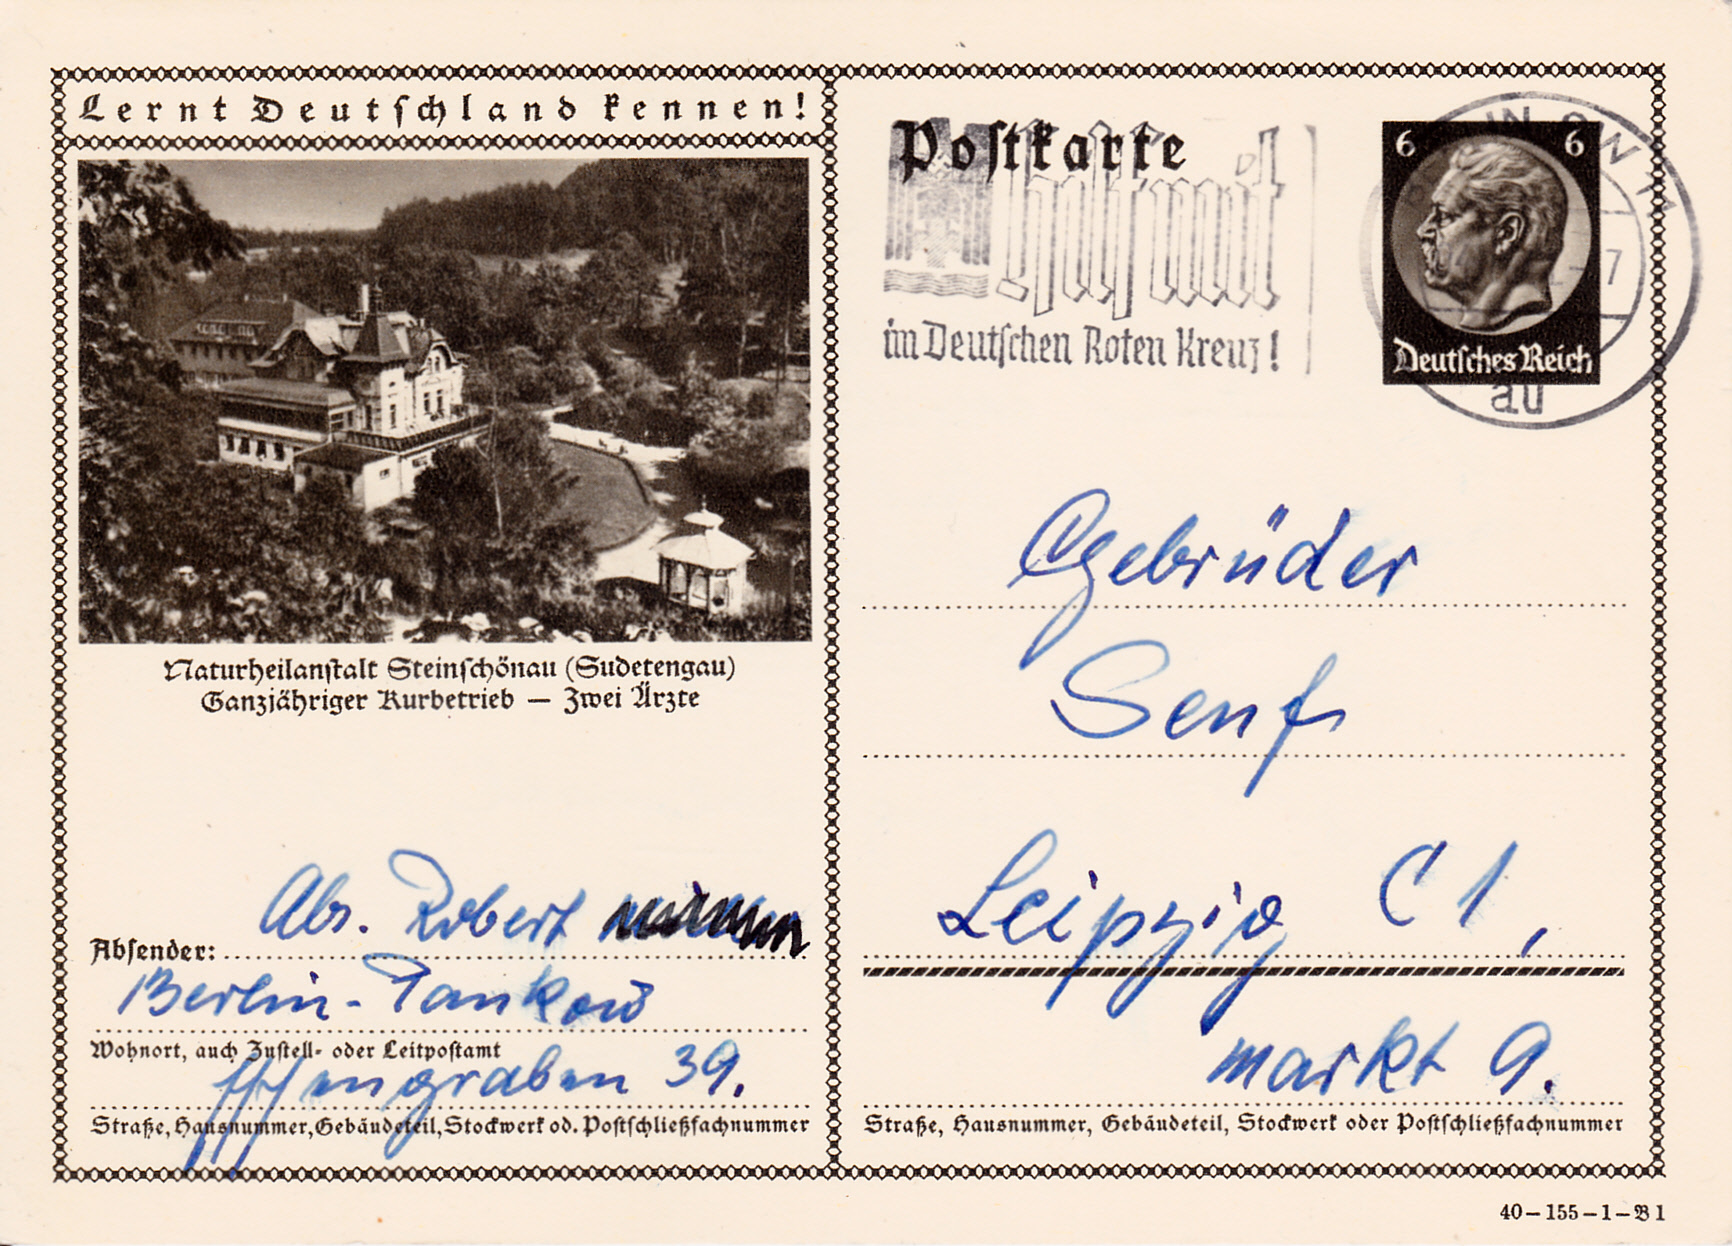 Lernt Deutschland kennen!
Naturheilanstalt Steinschönau (Sudetengau)
Ganzjähriger Kurbetrieb — Zwei Ärzte
Abs. Robert
Absender:
Berlin-Pankow
Wohnort, auch Zustell- oder Leitpostamt
39.
Straße, Hausnummer, Gebäudeteil, Stockwerk od. Postschließfachnummer
Postkarte
Helft mit
im Deutschen Roten Kreuz!
6 6
Deutsches Reich
au
Gebrüder
Senf
Leipzig C 1,
Markt 9.
Straße, Hausnummer, Gebäudeteil, Stockwerk oder Postschließfachnummer
40 – 155 – 1 – B 1